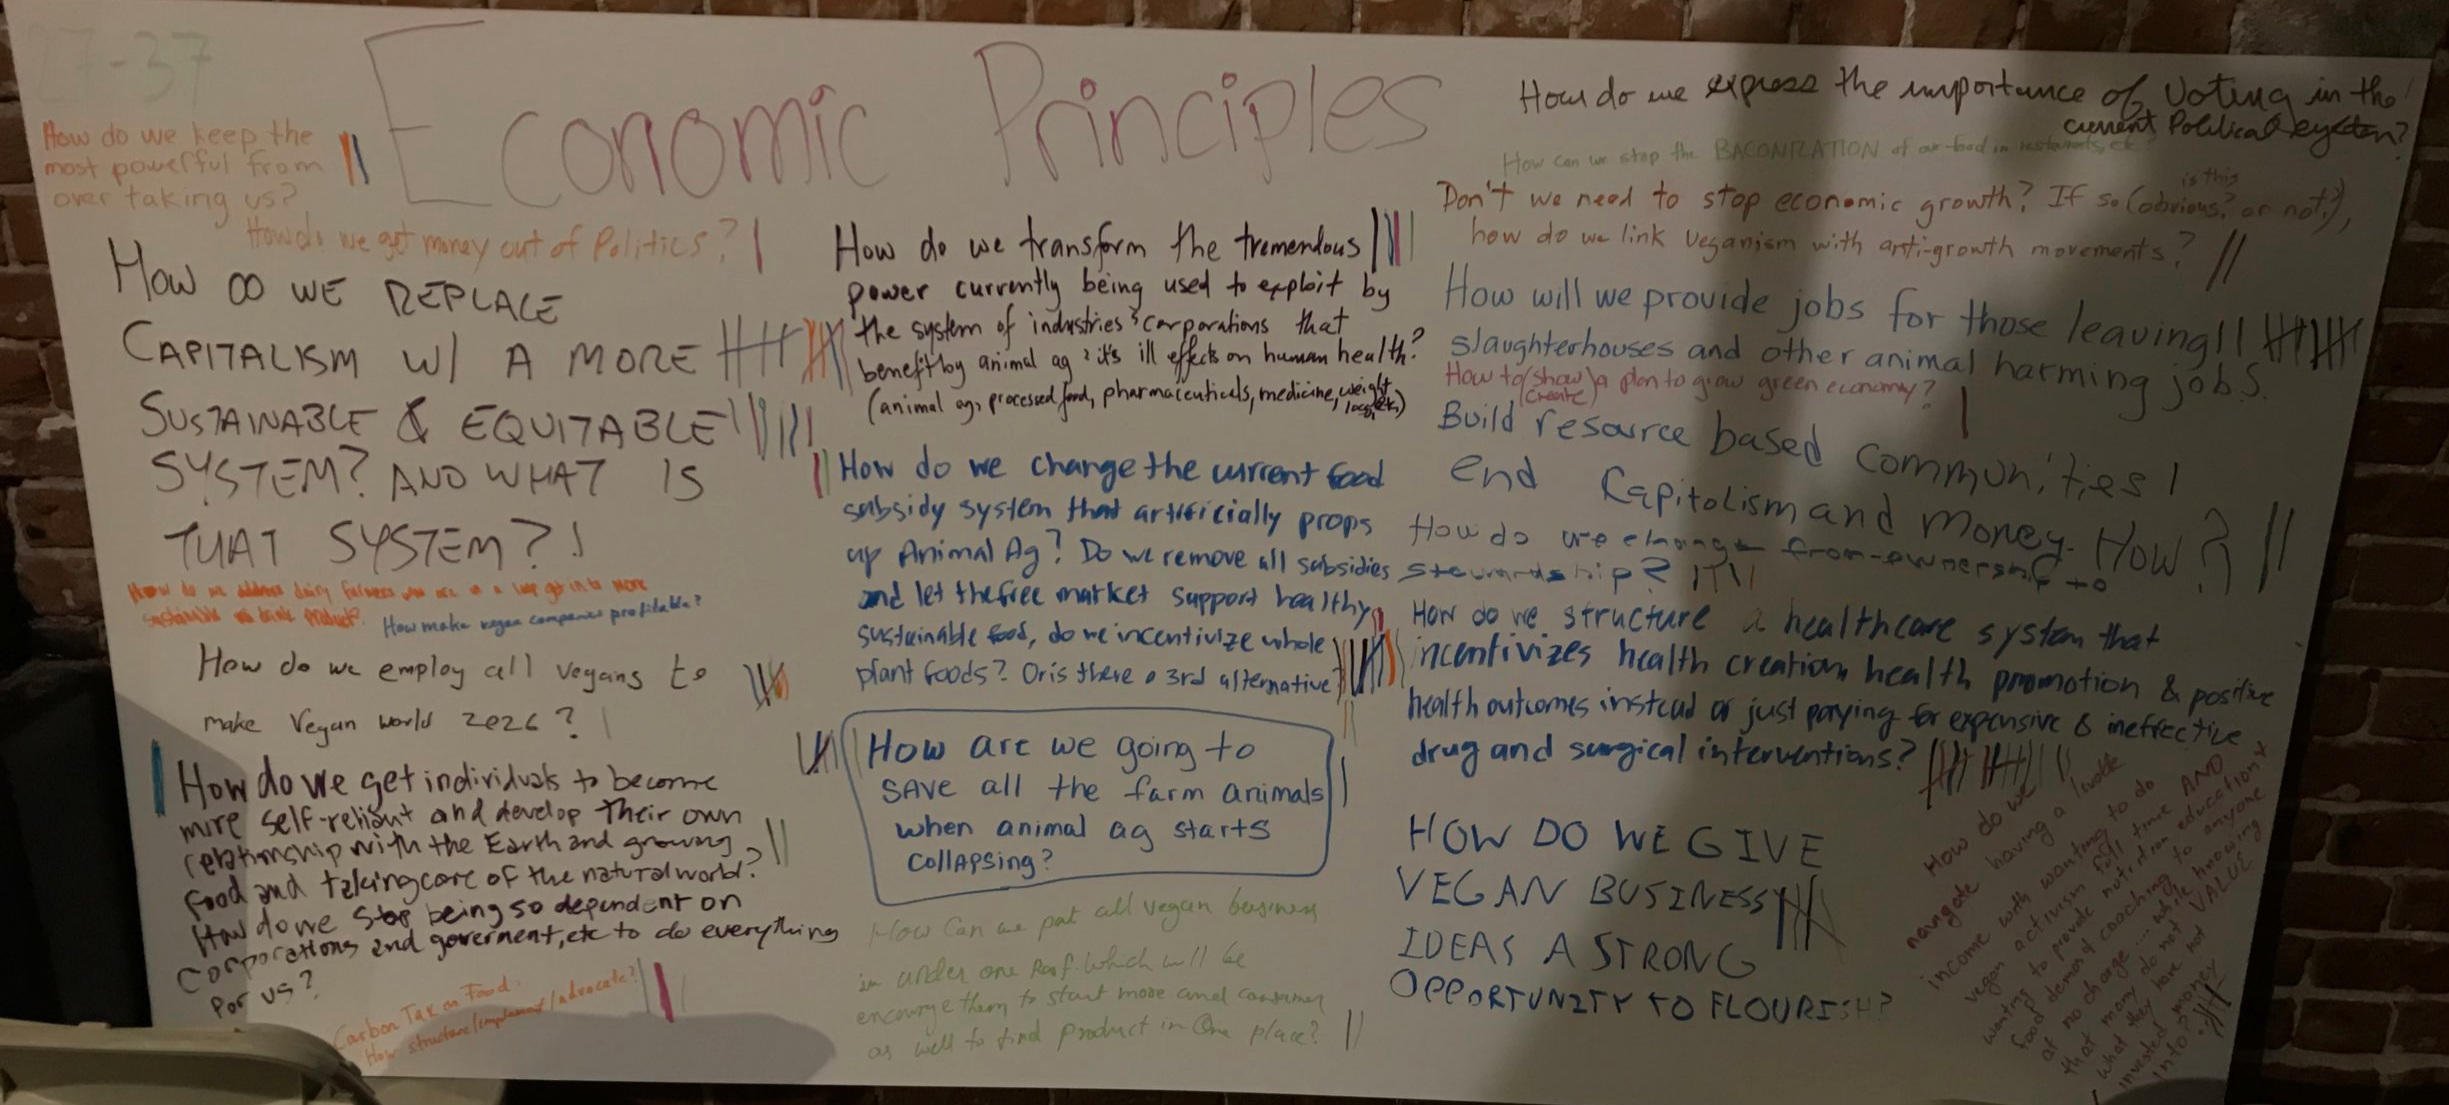 27-37
Economic Principles
How do we keep the
most powerful from
over taking us?
How do we get money out of Politics?
HOW DO WE REPLACE
CAPITALISM W/ A MORE
SUSTAINABLE & EQUITABLE
SYSTEM? AND WHAT IS
THAT SYSTEM?!
How do we address dairy farmers who are in a get into more
sustainable
How make vegan companies profitable?
How do we employ all vegans to
make Vegan world 2026?
How do we get individuals to become
more self-reliant and develop their own
relationship with the Earth and growing
food and taking care of the natural world?
How do we stop being so dependent on
corporations and goverment, etc to do everything
for us?
Carbon Tax on Food.
How structure/implement/advocate?
How do we transform the tremendous
power currently being used to exploit by
the system of industries & corporations that
benefit by animal ag & it's ill effects on human health?
(animal ag, processed food, pharmaceuticals, medicine, weight
loss, etc)
How do we change the current food
subsidy system that artificially props
up Animal Ag? Do we remove all subsidies
and let the free market support healthy,
sustainable food, do we incentivize whole
plant foods? Or is there a 3rd alternative?
How are we going to
SAVE all the farm animals
when animal ag starts
collapsing?
How Can we put all vegan business
in under one Roof. Which will be
encourge them to start more and consumer
as well to find product in One place?
How do we express the importance of Voting in the
current Political system?
How can we stop the BACONIZATION of our food in restaurants, etc
Don't we need to stop economic growth? If so (is this
obvious? or not?),
how do we link veganism with anti-growth movements?
How will we provide jobs for those leaving
slaughterhouses and other animal harming jobs.
How to (show) a plan to grow green economy?
(create)
Build resource based communities!
end Capitolism and money. How?
How do we change from ownership to
stewardship?
How do we structure a healthcare system that
incentivizes health creation, health promotion & positive
health outcomes instead of just paying for expensive & ineffective
drug and surgical interventions?
HOW DO WE GIVE
VEGAN BUSINESS
IDEAS A STRONG
OPPORTUNITY TO FLOURISH?
How do we
navigate having a livable
income with wanting to do
vegan activism full time AND
wanting to provide nutrition education &
food demos & coaching to anyone
at no charge .... while knowing
that many do not VALUE
what they have not
invested money
into?